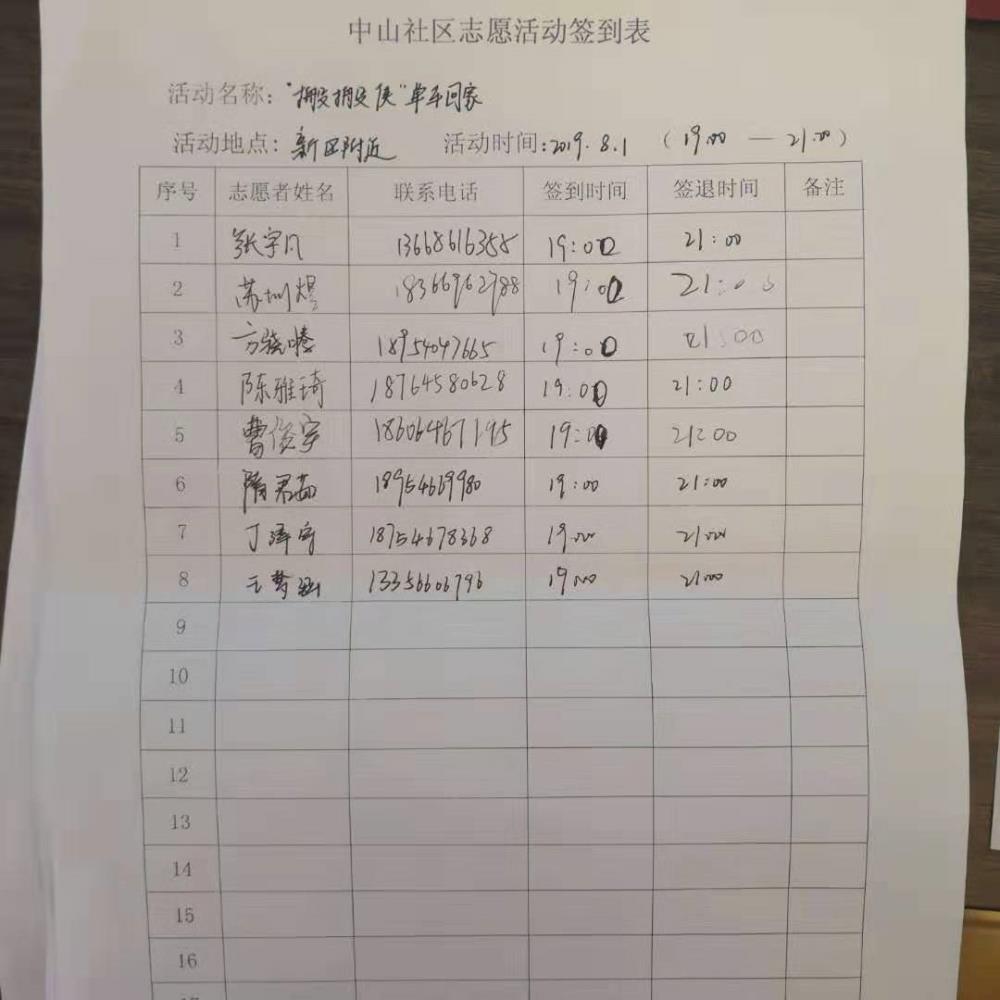 中山社区志愿活动签到表
活动名称："搬搬侠"单车回家
活动地点：新区附近 活动时间：2019.8.1 （19:00 — 21:00）
序号 志愿者姓名 联系电话 签到时间 签退时间 备注
1 张宇凡 13668616355 19:00 21:00
2 苏圳煜 18366962988 19:00 21:00
3 18954047665 19:00 21:00
4 陈雅琦 18764580628 19:00 21:00
5 曹俊宇 18606467195 19:00 21:00
6 隋君茹 18954669980 19:00 21:00
7 丁泽宇 18754678368 19:00 21:00
8 王梦涵 13356606796 19:00 21:00
9
10
11
12
13
14
15
16